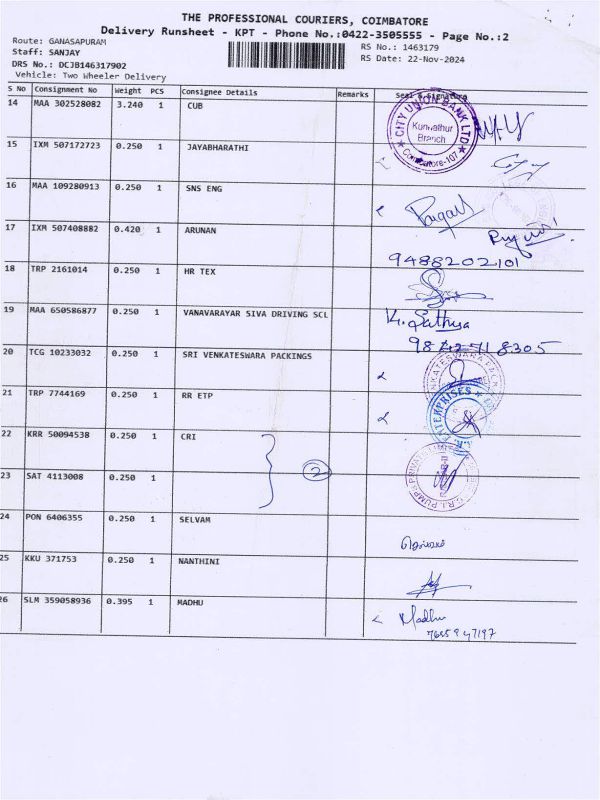 THE PROFESSIONAL COURIERS, COIMBATORE
Delivery Runsheet - KPT - Phone No.:0422-3505555 - Page No.:2
Route: GANASAPURAM
Staff: SANJAY
DRS No.: DCJB146317902
Vehicle: Two Wheeler Delivery
RS No.: 1463179
RS Date: 22-Nov-2024
S No Consignment No Weight PCS Consignee Details Remarks Seal & Signature
14 MAA 302528082 3.240 1 CUB
CITY UNION BANK LTD
Kurivathur
Branch
Coimbatore-107
15 IXM 507172723 0.250 1 JAYABHARATHI
16 MAA 109280913 0.250 1 SNS ENG
17 IXM 507408882 0.420 1 ARUNAN
9488202101
18 TRP 2161014 0.250 1 HR TEX
19 MAA 650586877 0.250 1 VANAVARAYAR SIVA DRIVING SCL K. Sathya
20 TCG 10233032 0.250 1 SRI VENKATESWARA PACKINGS
21 TRP 7744169 0.250 1 RR ETP
ENTERPRISES
22 KRR 50094538 0.250 1 CRI
23 SAT 4113008 0.250 1
2
C.R.I. PUMPS PRIVATE LIMITED
24 PON 6406355 0.250 1 SELVAM
25 KKU 371753 0.250 1 NANTHINI
26 SLM 359058936 0.395 1 MADHU Madhu